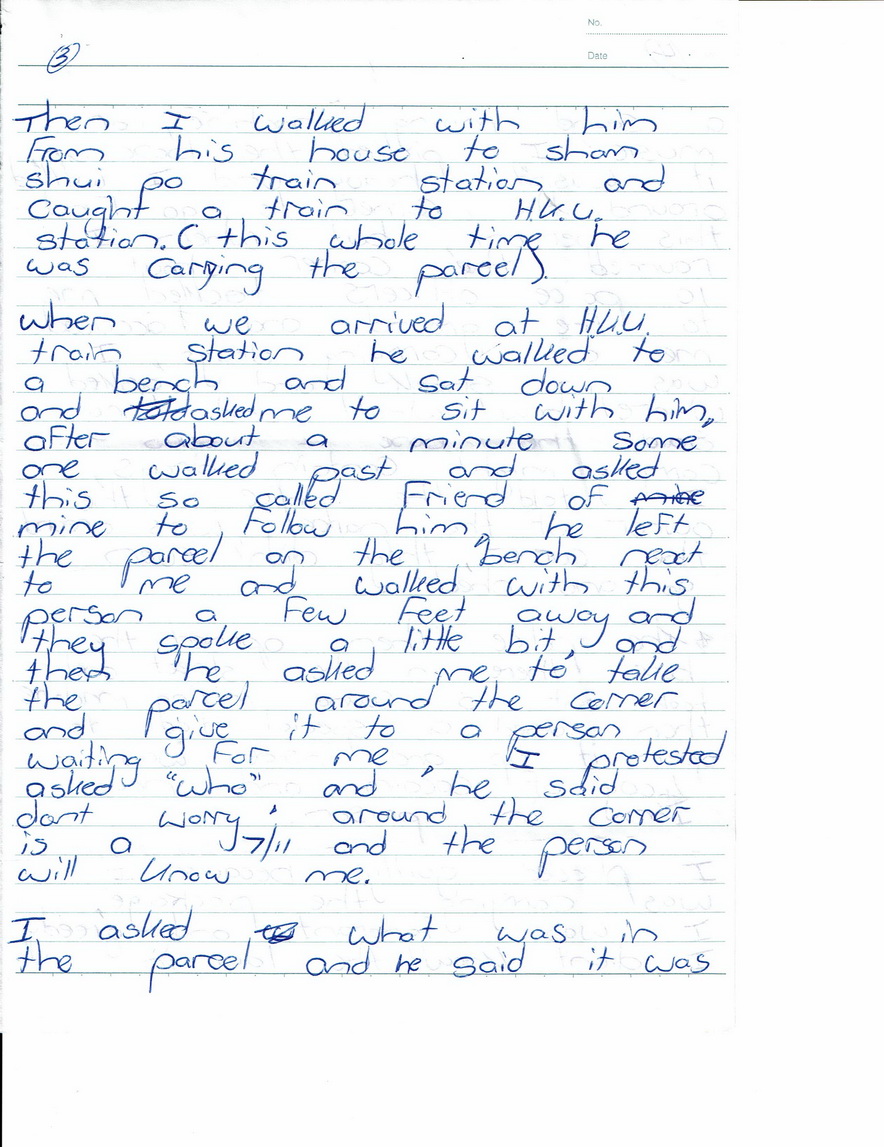 No.
Date
3
Then I walked with him
From his house to sham
shui po train station and
caught a train to H.K.U.
station. ( this whole time he
was carrying the parcel ).
when we arrived at H.K.U.
train station he walked to
a bench and sat down
and told asked me to sit with him,
after about a minute some
one walked past and asked
this so called Friend of mine
mine to Follow him, he left
the parcel on the bench next
to me and walked with this
person a Few Feet away and
they spoke a little bit, and
then he asked me to take
the parcel around the corner
and give it to a person
waiting For me, I protested
asked "who" and he said
dont worry, around the corner
is a 7/11 and the person
will know me.
I asked what was in
the parcel and he said it was